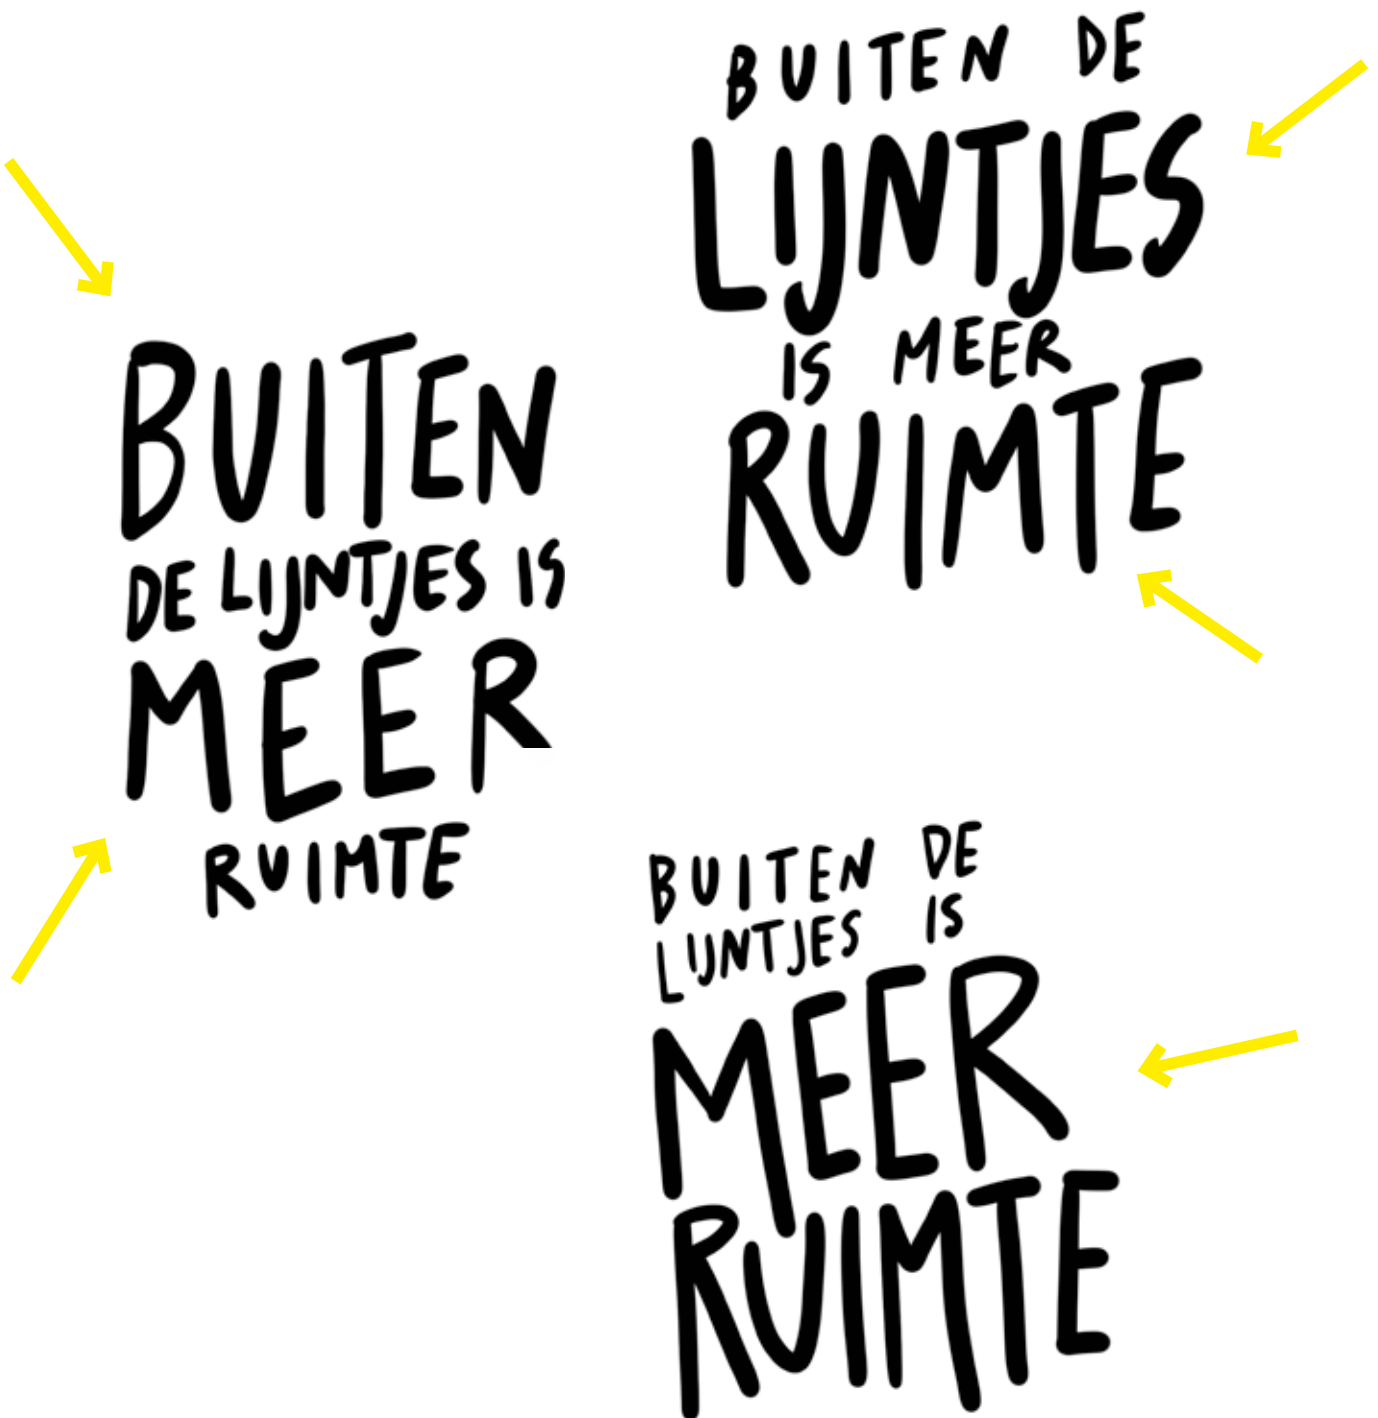 BUITEN
DE LIJNTJES IS
MEER
RUIMTE
BUITEN DE
LIJNTJES
IS MEER
RUIMTE
BUITEN DE
LIJNTJES IS
MEER
RUIMTE